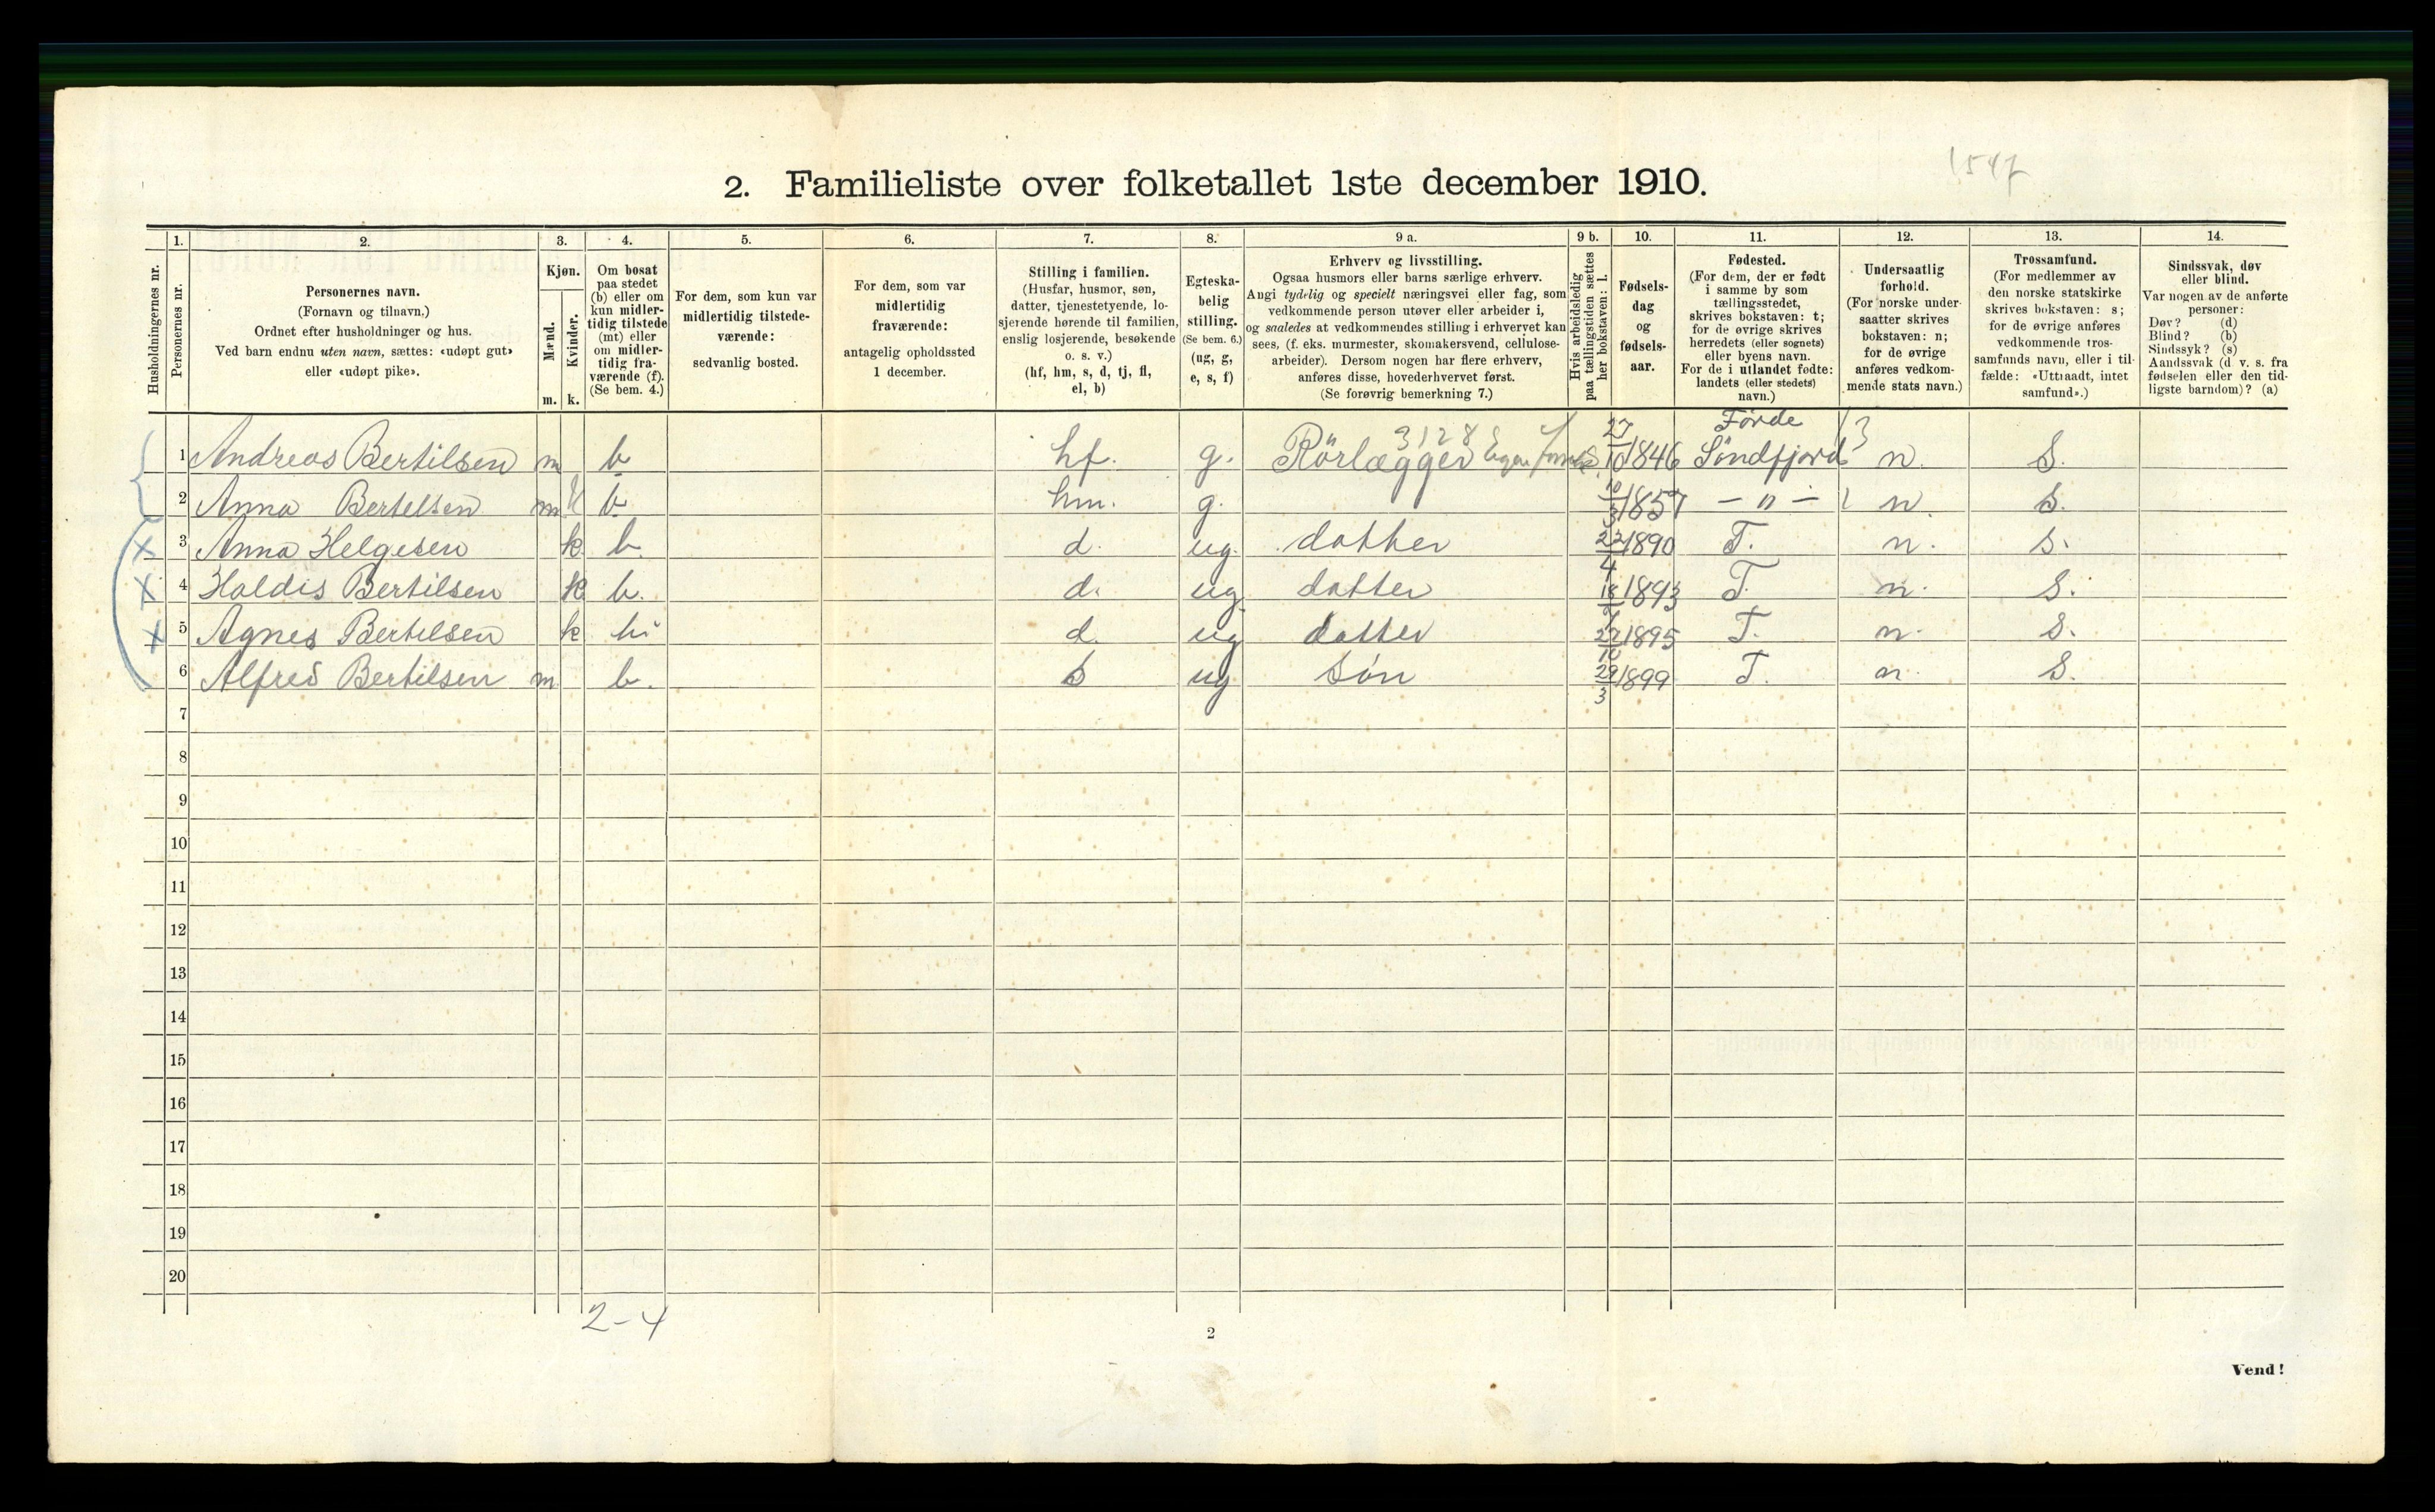 1547
2. Familieliste over folketallet 1ste december 1910.
Husholdningernes nr.
1. Personernes nr.
2. Personernes navn. (Fornavn og tilnavn,) Ordnet efter husholdninger og hus. Ved barn endnu uten navn, sættes: «udøpt gut» eller «udøpt pike».
3. Kjøn. Mænd. m. Kvinder. k.
4. Om bosat paa stedet (b) eller om kun midlertidig tilstede (mt) eller om midlertidig fraværende (f). (Se bem. 4.)
5. For dem, som kun var midlertidig tilstedeværende: sedvanlig bosted.
6. For dem, som var midlertidig fraværende: antagelig opholdssted 1 december.
7. Stilling i familien. (Husfar, husmor, søn, datter, tjenestetyende, losjerende hørende til familien, enslig losjerende, besøkende o. s. v.) (hf, hm, s, d, tj, fl, el, b)
8. Egteskabelig stilling. (Se bem. 6.) (ug, g, e, s, f)
9 a. Erhverv og livsstilling. Ogsaa husmors eller barns særlige erhverv. Angi tydelig og specielt næringsvei eller fag, som vedkommende person utøver eller arbeider i, og saaledes at vedkommendes stilling i erhvervet kan sees, (f. eks. murmester, skomakersvend, cellulosearbeider). Dersom nogen har flere erhverv, anføres disse, hovederhvervet først. (Se forøvrig bemerkning 7.)
9 b. Hvis arbeidsledig paa tællingstiden sættes her bokstaven: l.
10. Fødselsdag og fødselsaar.
11. Fødested. (For dem, der er født i samme by som tællingsstedet, skrives bokstaven: t; for de øvrige skrives herredets (eller sognets) eller byens navn. For de i utlandet fødte: landets (eller stedets) navn.)
12. Undersaatlig forhold. (For norske undersaatter skrives bokstaven: n; for de øvrige anføres vedkommende stats navn.)
13. Trossamfund. (For medlemmer av den norske statskirke skrives bokstaven: s; for de øvrige anføres vedkommende trossamfunds navn, eller i tilfælde: «Uttraadt, intet samfund».)
14. Sindssvak, døv eller blind. Var nogen av de anførte personer: Døv? (d) Blind? (b) Sindssyk? (s) Aandssvak (d. v. s. fra fødselen eller den tidligste barndom)? (a)
1 Andreas Bertilsen m b hf. g. Rörlægger 3128 Egen 27/10 1846 Førde Söndfjord n. S.
2 Anna Bertelsen m k b hm. g. 10/3 1857 - " - n. S.
x 3 Anna Helgesen k b. d. ug. datter 22/4 1890 T. n. S.
x 4 Haldis Bertilsen k b. d. ug. datter 1893 T. n. S.
x 5 Agnes Bertelsen k d. ug datter 27/10 1895 T. n. S.
6 Alfred Bertilsen m b. S ug Sön 29/3 1899 T. n. S.
7
8
9
10
11
12
13
14
15
16
17
18
19
20
2-4
2
Vend!